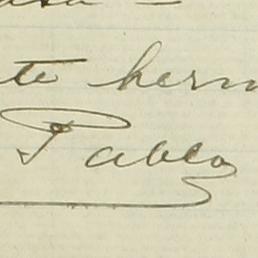 te herm
Pablo